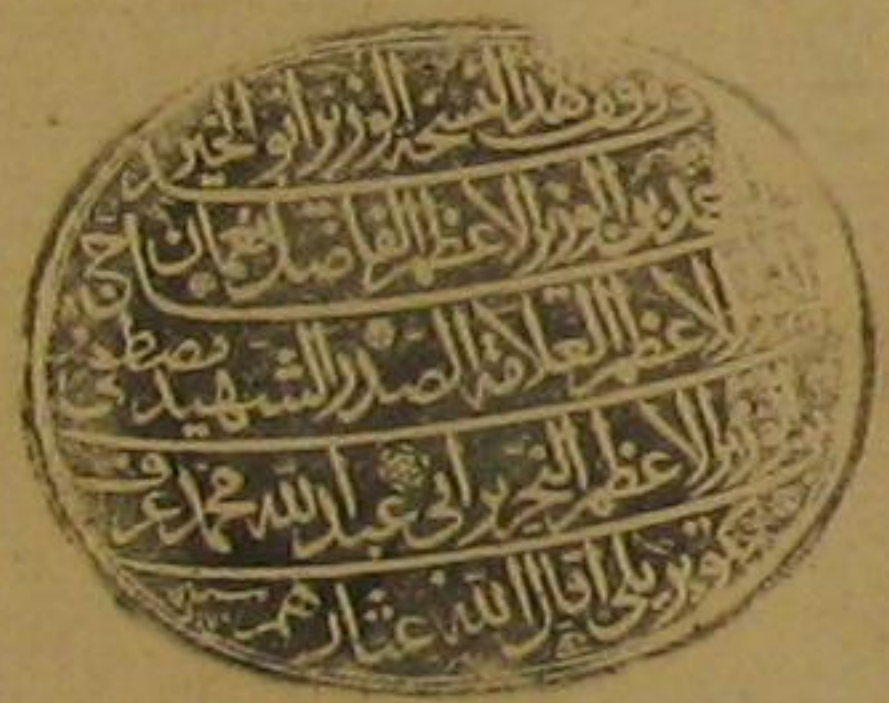 وقف هذا النسخة الوزير أبو الخير
أحمد بن الوزير الأعظم الفاضل نعمان بن
الأعظم العلامة الصدر الشهيد مصطفى
الوزير الأعظم النحرير أبي عبد الله محمد عرف
بكوبريلي أقال الله عثارهم